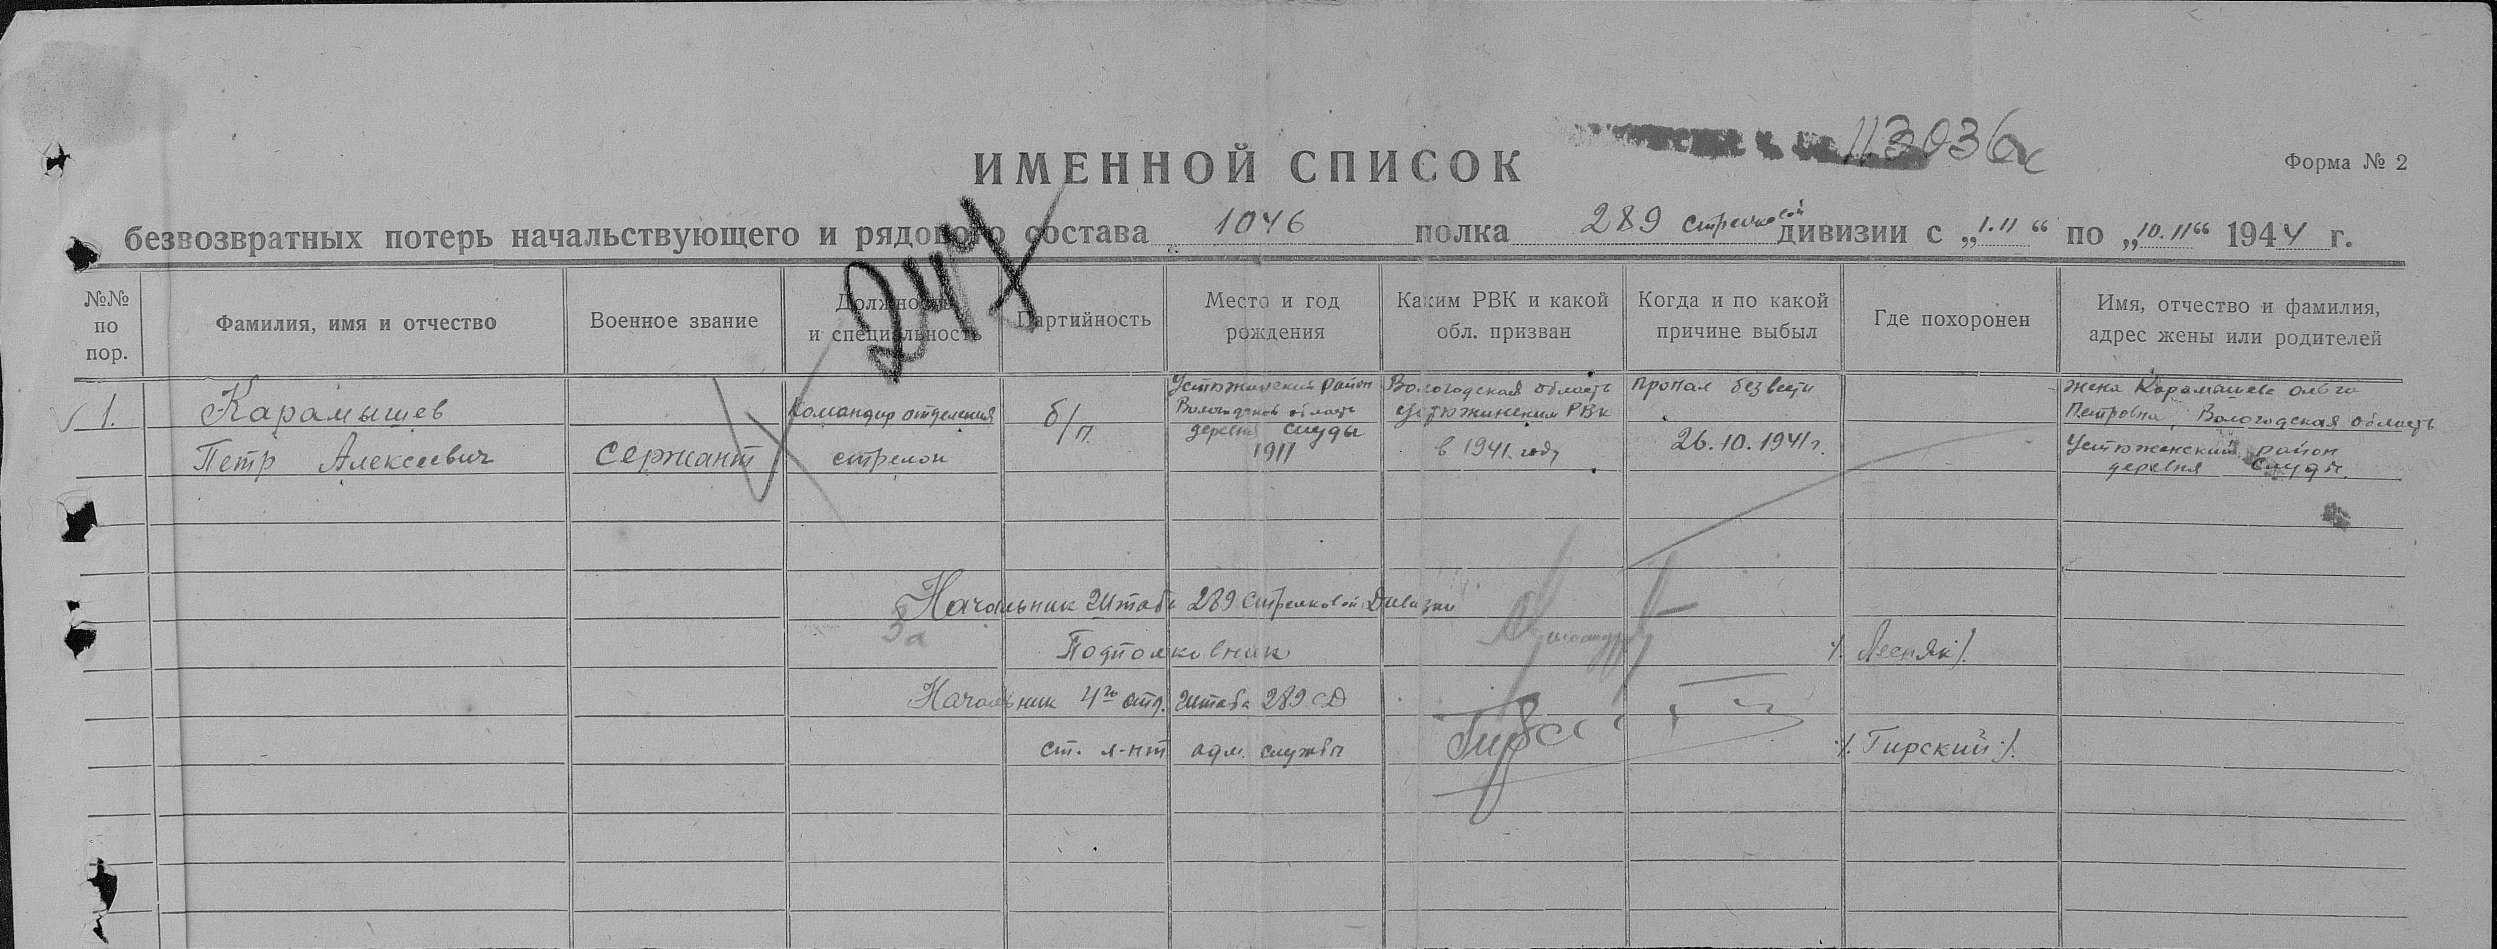 113036с
ИМЕННОЙ СПИСОК
Форма № 2
безвозвратных потерь начальствующего и рядового состава 1046 полка 289 стрелковой дивизии с „1.11“ по „10.11“ 1944 г.
247
№№ по пор.
Фамилия, имя и отчество
Военное звание
Должность и специальность
Партийность
Место и год рождения
Каким РВК и какой обл. призван
Когда и по какой причине выбыл
Где похоронен
Имя, отчество и фамилия, адрес жены или родителей
1.
Карамышев
Петр Алексеевич
Сержант
Командир отделения
стрелок
б/п
Устюженский район
Вологодской область
деревня Слуды
1911
Вологодская область
Устюжинским РВК
в 1941 году
Пропал без вести
26.10.1941 г.
жена Карамышева Ольга
Петровна, Вологодская область
Устюженский район
деревня Слуды.
Начальник Штаба 289 Стрелковой Дивизии
За
Подполковник
/. Лесняк /.
Начальник 4го отд. штаба 289 СД
ст. л-нт адм. службы
/. Гирский /.